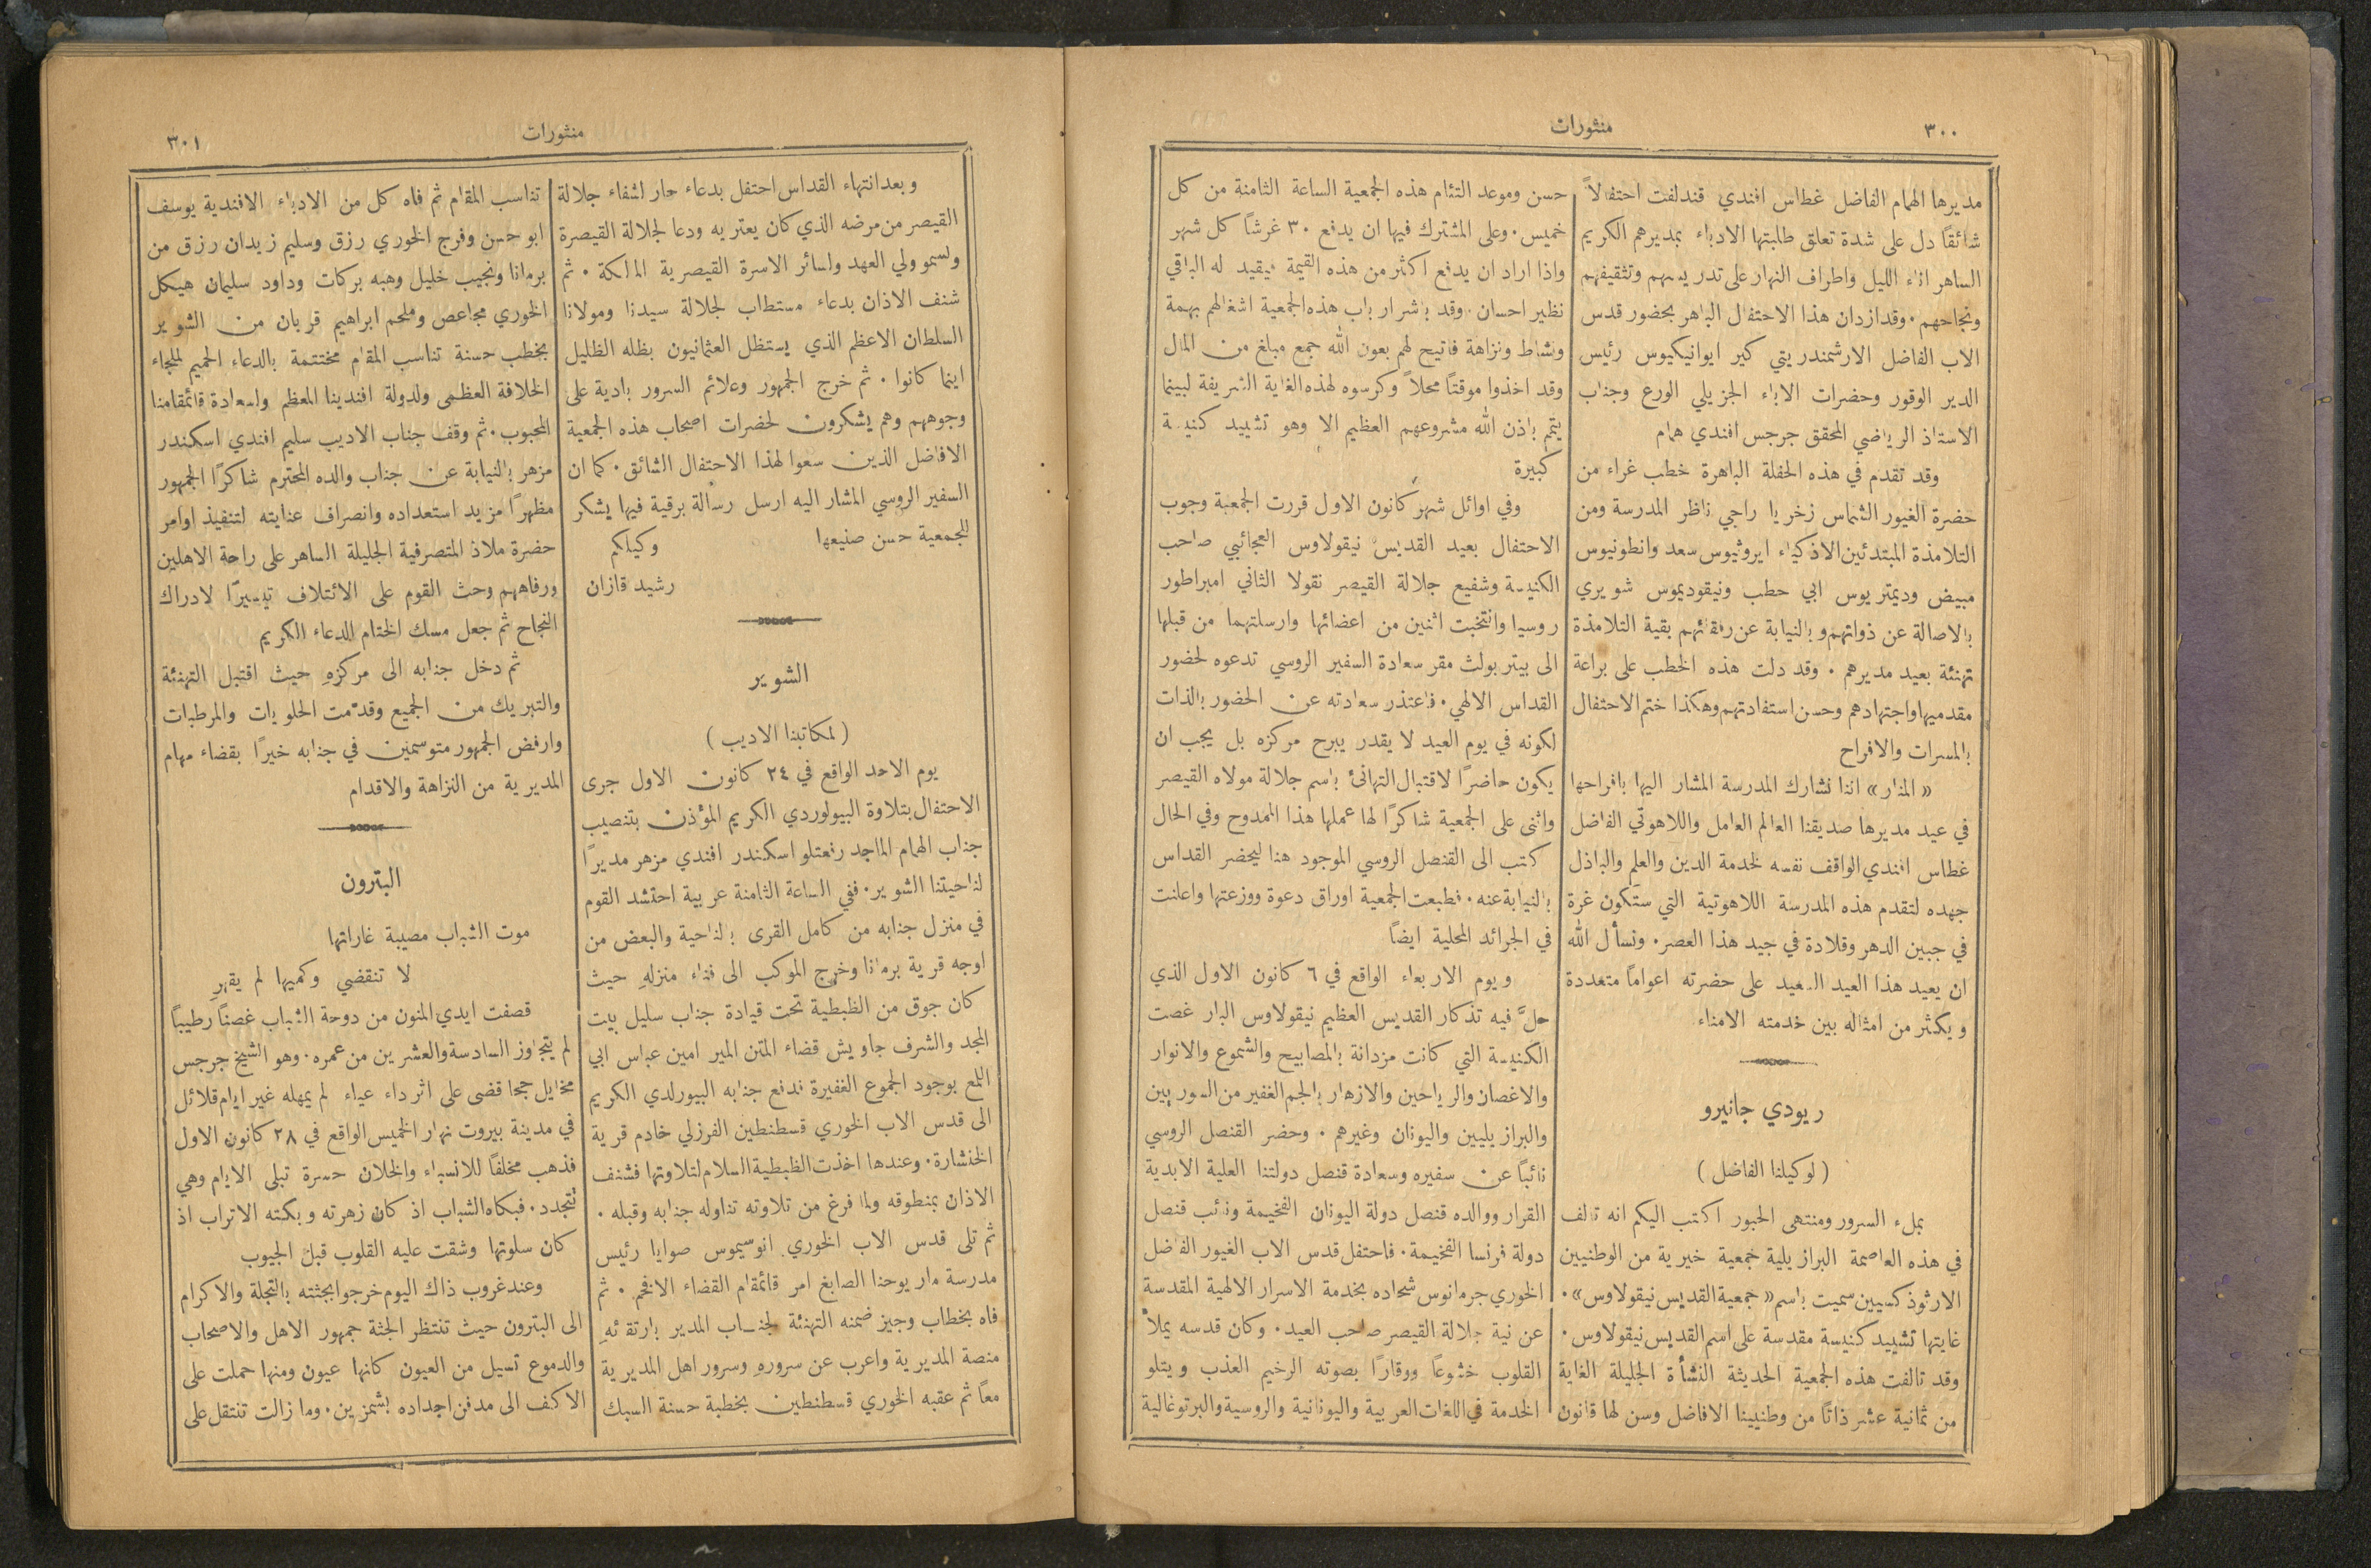 ٣٠٠
منثورات
مديرها الهمام الفاضل غطاس افندي قندلفت احتفالاً
شائقًا دل على شدة تعلق طلبتها الادباء بمديرهم الكريم
الساهر اناء الليل واطراف النهار على تدريسهم وتثقيفهم
ونجاحهم. وقد ازدان هذا الاحتفال الباهر بحضور قدس
الاب الفاضل الارشمندريتي كير ايوانيكيوس رئيس
الدير الوقور وحضرات الاباء الجزيلي الورع وجناب
الاستاذ الرياضي المحقق جرجس افندي همام
وقد تقدم في هذه الحفلة الباهرة خطب غراء من
حضرة الغيور الشماس زخريا راجي ناظر المدرسة ومن
التلامذة المبتدئين الاذكياء ايروثيوس سعد وانطونيوس
مبيض وديمتريوس ابي حطب ونيقوديموس شويري
بالاصالة عن ذواتهم وبالنيابة عن رفقائهم بقية التلامذة
تهنئة بعيد مديرهم. وقد دلت هذه الخطب على براعة
مقدميها واجتهادهم وحسن استفادتهم وهكذا ختم الاحتفال
بالمسرات والافراح
«المنار» اننا نشارك المدرسة المشار اليها بافراحها
في عيد مديرها صديقنا العالم العامل واللاهوتي الفاضل
غطاس افندي الواقف نفسه لخدمة الدين والعلم والباذل
جهده لتقدم هذه المدرسة اللاهوتية التي ستكون غرة
في جبين الدهر وقلادة في جيد هذا العصر. ونسأل الله
ان يعيد هذا العيد السعيد على حضرته اعوامًا متعددة
ويكثر من امثاله بين خدمته الامناء
ريودي جانيرو
(لوكيلنا الفاضل)
بملء السرور ومنتهى الحبور اكتب اليكم انه تالف
في هذه العاصمة البرازيلية جمعية خيرية من الوطنيين
الارثوذكسيين سميت باسم «جمعية القديس نيقولاوس».
غايتها تشييد كنيسة مقدسة على اسم القديس نيقولاوس.
وقد تالفت هذه الجمعية الحديثة النشأة الجليلة الغاية
من ثمانية عشر ذاتًا من وطنيينا الافاضل وسن لها قانون
حسن وموعد التئام هذه الجمعية الساعة الثامنة من كل
خميس. وعلى المشترك فيها ان يدفع ٣٠ غرشًا كل شهر
واذا اراد ان يدفع اكثر من هذه القيمة فيقيد له الباقي
نظير احسان. وقد باشر ارباب هذه الجمعية اشغالهم بهمة
ونشاط ونزاهة فاتيح لهم بعون الله جمع مبلغ من المال
وقد اخذوا موقتًا محلاً وكرسوه لهذه الغاية الشريفة لبينما
يتم باذن الله مشروعهم العظيم الا وهو تشييد كنيسة
كبيرة
وفي اوائل شهر كانون الاول قررت الجمعية وجوب
الاحتفال بعيد القديس نيقولاوس العجائبي صاحب
الكنيسة وشفيع جلالة القيصر نقولا الثاني امبراطور
روسيا وانتخبت اثنين من اعضائها وارسلتهما من قبلها
الى بيتر بولث مقر سعادة السفير الروسي تدعوه لحضور
القداس الالهي. فاعتذر سعادته عن الحضور بالذات
لكونه في يوم العيد لا يقدر يبرح مركزه بل يجب ان
يكون حاضرًا لاقتبال التهانئ باسم جلالة مولاه القيصر
واثنى على الجمعية شاكرًا لها عملها هذا الممدوح وفي الحال
كتب الى القنصل الروسي الموجود هنا ليحضر القداس
بالنيابة عنه. فطبعت الجمعية اوراق دعوة ووزعتها واعلنت
في الجرائد المحلية ايضًا
ويوم الاربعاء الواقع في ٦ كانون الاول الذي
حلَّ فيه تذكار القديس العظيم نيقولاوس البار غصت
الكنيسة التي كانت مزدانة بالمصابيح والشموع والانوار
والاغصان والرياحين والازهار بالجم الغفير من السوريين
والبرازيليين واليونان وغيرهم. وحضر القنصل الروسي
نائبًا عن سفيره وسعادة قنصل دولتنا العلية الابدية
القرار ووالده قنصل دولة اليونان الفخيمة ونائب قنصل
دولة فرنسا الفخيمة. فاحتفل قدس الاب الغيور الفاضل
الخوري جرمانوس شحاده بخدمة الاسرار الالهية المقدسة
عن نية جلالة القيصر صاحب العيد. وكان قدسه يملأ
القلوب خشوعًا ووقارًا بصوته الرخيم العذب ويتلو
الخدمة في اللغات العربية واليونانية والروسية والبرتوغالية
منثورات
٣٠١
وبعد انتهاء القداس احتفل بدعاء حار لشفاء جلالة
القيصر من مرضه الذي كان يعتريه ودعا لجلالة القيصرة
ولسمو ولي العهد ولسائر الاسرة القيصرية المالكة. ثم
شنف الاذان بدعاء مستطاب لجلالة سيدنا ومولانا
السلطان الاعظم الذي يستظل العثمانيون بظله الظليل
اينما كانوا. ثم خرج الجمهور وعلائم السرور بادية على
وجوههم وهم يشكرون لحضرات اصحاب هذه الجمعية
الافاضل الذين سعوا لهذا الاحتفال الشائق. كما ان
السفير الروسي المشار اليه ارسل رسالة برقية فيها يشكر
للجمعية حسن صنيعها وكيلكم
رشيد قازان
الشوير
(لمكاتبنا الاديب)
يوم الاحد الواقع في ٢٤ كانون الاول جرى
الاحتفال بتلاوة البيولوردي الكريم المؤذن بتنصيب
جناب الهمام الماجد رفعتلو اسكندر افندي مزهر مديرًا
لناحيتنا الشوير. ففي الساعة الثامنة عربية احتشد القوم
في منزل جنابه من كامل القرى بالناحية والبعض من
اوجه قرية برمانا وخرج الموكب الى فناء منزلهِ حيث
كان جوق من الظبطية تحت قيادة جناب سليل بيت
المجد والشرف جاويش قضاء المتن المير امين عباس ابي
اللمع بوجود الجموع الغفيرة فدفع جنابه البيورلدي الكريم
الى قدس الاب الخوري قسطنطين الفرزلي خادم قرية
الخنشارة. وعندها اخذت الظبطية السلام لتلاوتها فشنف
الاذان بمنطوقه ولما فرغ من تلاوته تناوله جنابه وقبله.
ثم تلى قدس الاب الخوري انوسيموس صوايا رئيس
مدرسة مار يوحنا الصابغ امر قائمقام القضاء الافخم. ثم
فاه بخطاب وجيز ضمنه التهنئة لجناب المدير بارتقائهِ
منصة المديرية واعرب عن سرورهِ وسرور اهل المديرية
معًا ثم عقبه الخوري قسطنطين بخطبة حسنة السبك
تناسب المقام ثم فاه كل من الادباء الافندية يوسف
ابو حسن وفرج الخوري رزق وسليم زيدان رزق من
برمانا ونجيب خليل وهبه بركات وداود سليمان هيكل
الخوري مجاعص وملحم ابراهيم قربان من الشوير
بخطب حسنة تناسب المقام مختتمة بالدعاء الحميم لملجاء
الخلافة العظمى ولدولة افندينا المعظم ولسعادة قائمقامنا
المحبوب. ثم وقف جناب الاديب سليم افندي اسكندر
مزهر بالنيابة عن جناب والده المحترم شاكرًا الجمهور
مظهرًا مزيد استعداده وانصراف عنايته لتنفيذ اوامر
حضرة ملاذ المتصرفية الجليلة الساهر على راحة الاهلين
ورفاههم وحث القوم على الائتلاف تيسيرًا لادراك
النجاح ثم جعل مسك الختام الدعاء الكريم
ثم دخل جنابه الى مركزهِ حيث اقتبل التهنئة
والتبريك من الجميع وقدّمت الحلويات والمرطبات
وارفض الجمهور متوسمين في جنابه خيرًا بقضاء مهام
المديرية من النزاهة والاقدام
البترون
موت الشباب مصيبة غاراتها
لا تنقضي وكميها لم يقهرِ
قصفت ايدي المنون من دوحة الشباب غصنًا رطيبًا
لم يتجاوز السادسة والعشرين من عمره. وهو الشيخ جرجس
مخايل جحا قضى على اثر داء عياء لم يمهله غير ايام قلائل
في مدينة بيروت نهار الخميس الواقع في ٢٨ كانون الاول
فذهب مخلفًا للانسباء والخلان حسرة تبلى الايام وهي
تتجدد. فبكاه الشباب اذ كان زهرته وبكته الاتراب اذ
كان سلوتها وشقت عليه القلوب قبل الجيوب
وعند غروب ذاك اليوم خرجوا بجثته بالتجلة والاكرام
الى البترون حيث تنتظر الجثة جمهور الاهل والاصحاب
والدموع تسيل من العيون كانها عيون ومنها حملت على
الاكف الى مدفن اجداده بشمزين. وما زالت تنتقل على